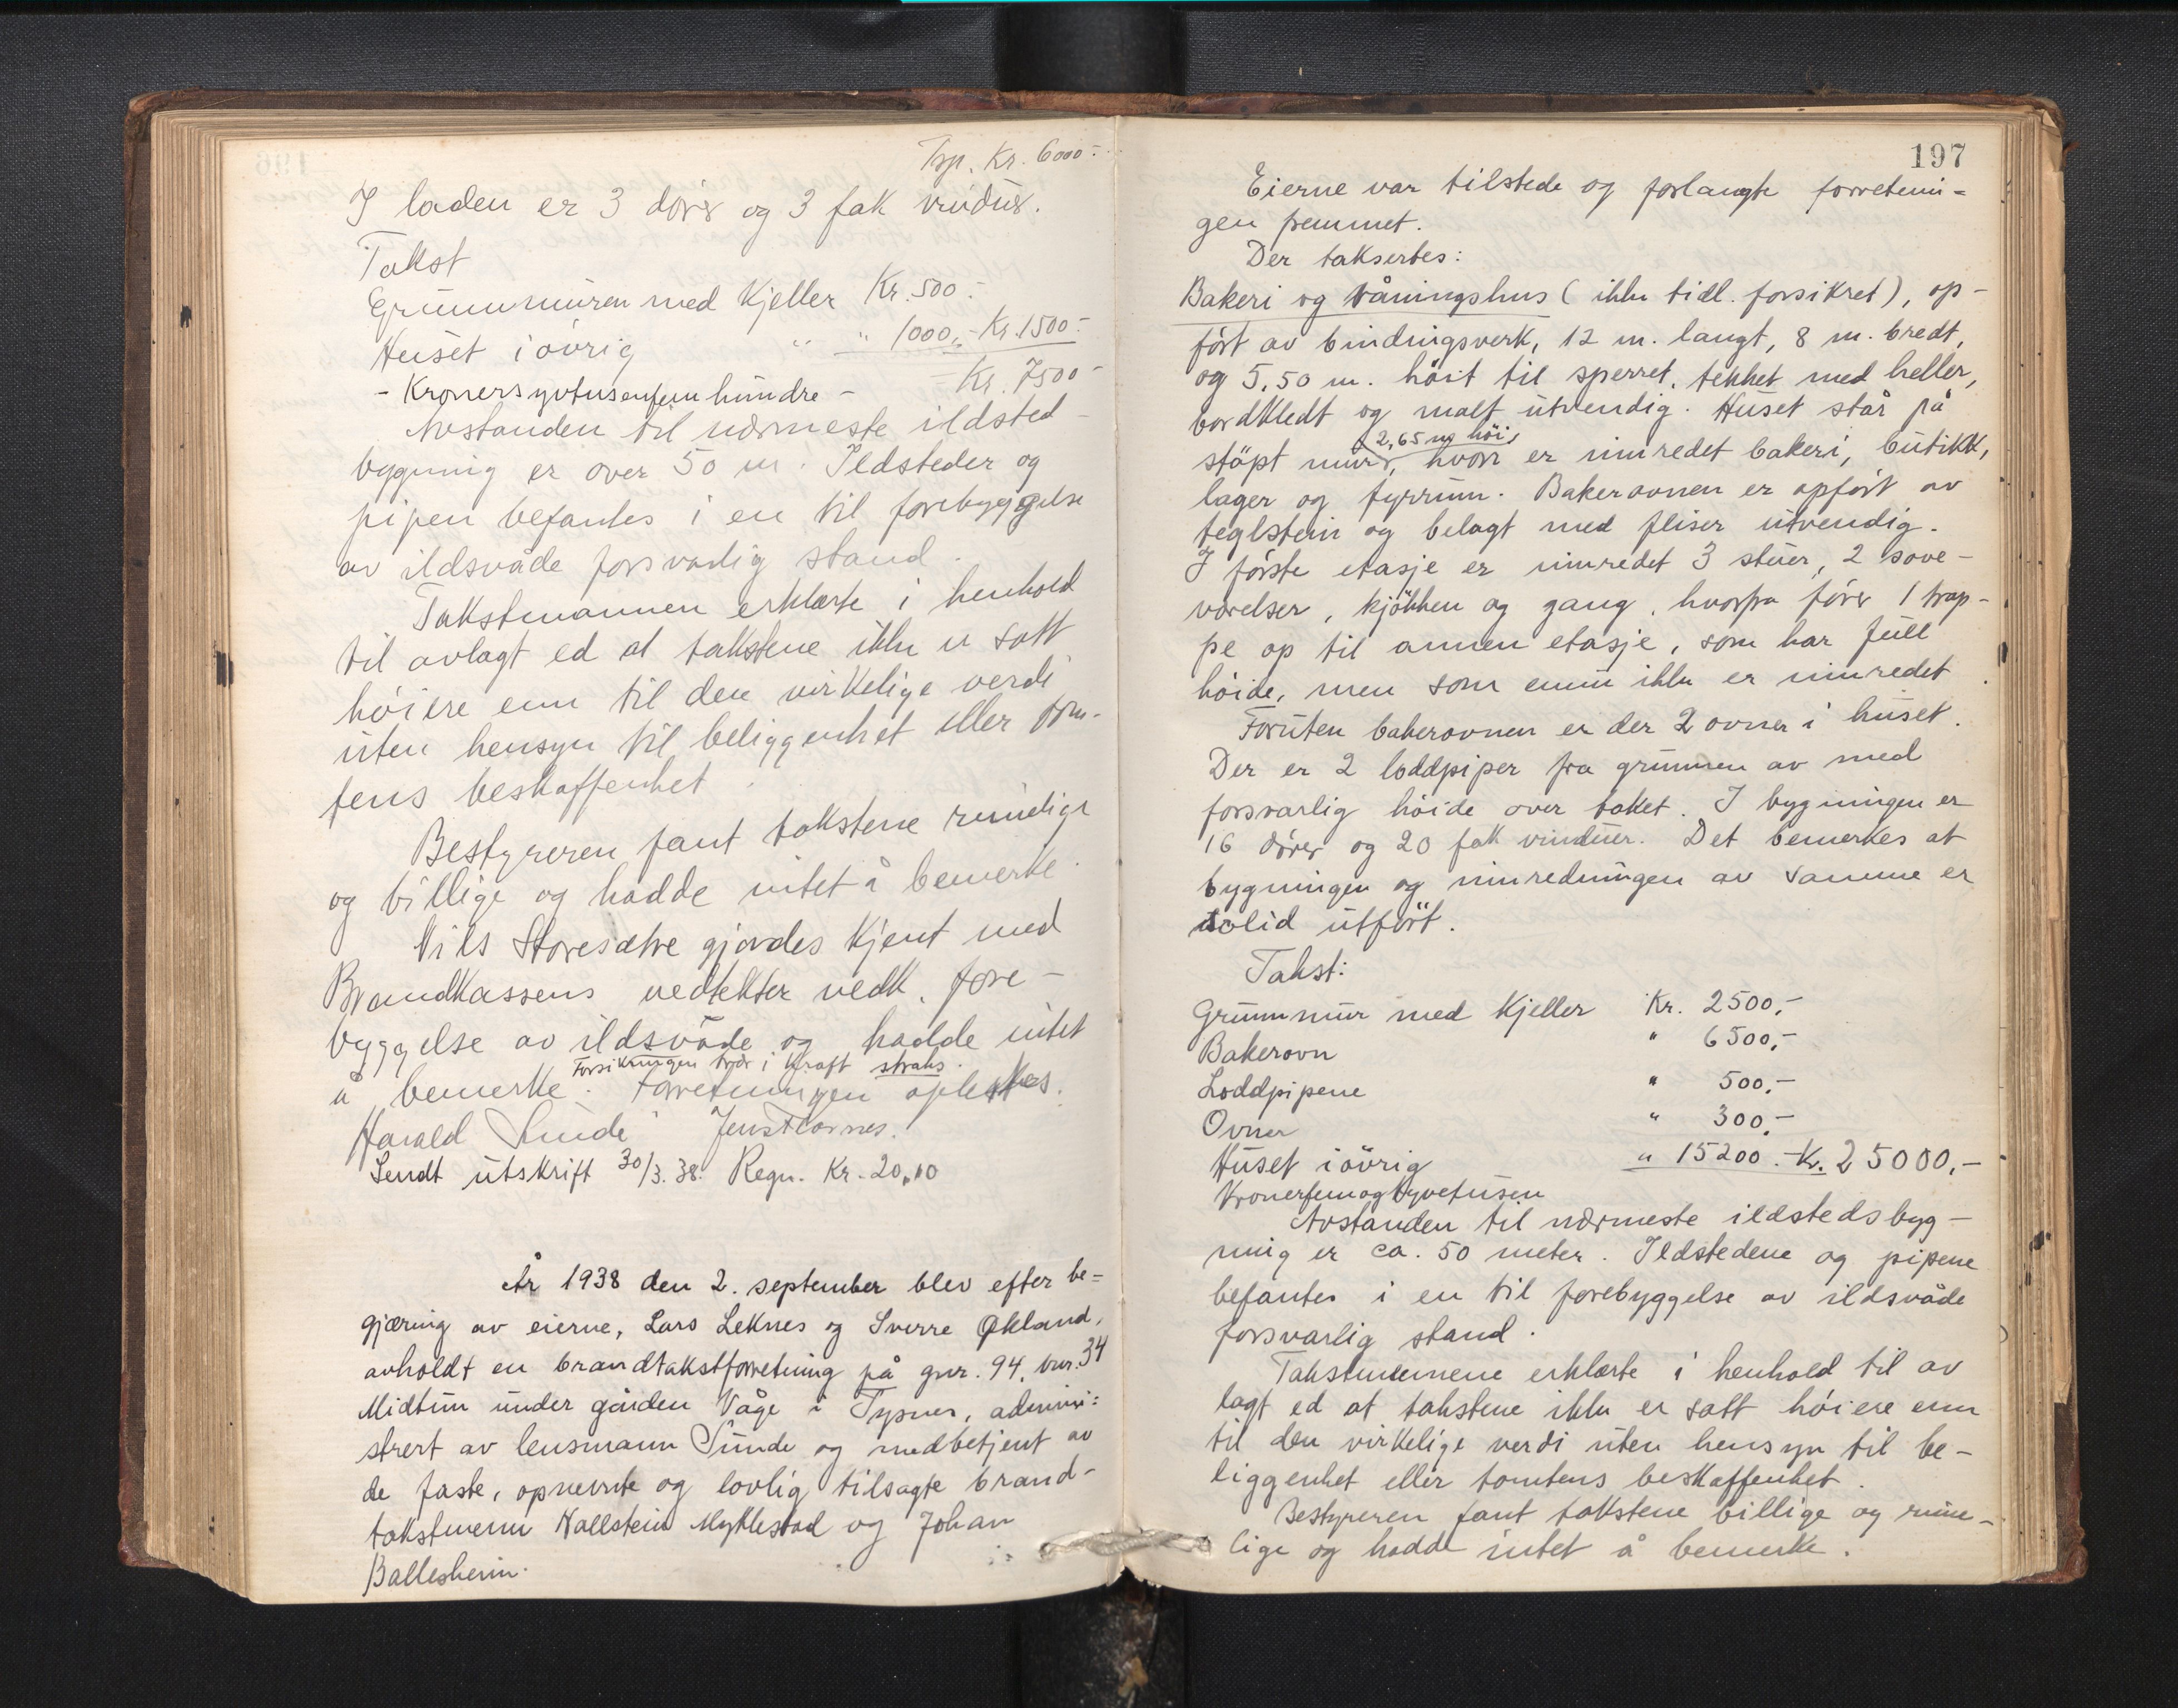 Trp. Kr. 6000.-
I laden er 3 dörer og 3 fak vinduer.
Takst
Grunnmuren med kjeller Kr. 500.-
Huset iövrig " " 1000,- Kr. 1500.-
- Kronersyvtusenfemhundre - Kr. 7500-
Avstanden til nærmeste ildsted-
bygning er over 50 m. Ildsteder og
pipen befantes i en til forebyggelse
av ildsvåde forsvarlig stand.
Takstmannen erklærte i henhold
til avlagt ed at takstene ikke er satt
höiere enn til den virkelige verdi
uten hensyn til beliggenhet eller tom-
tens beskaffenhet.
Bestyreren fant takstene rimelige
og billige og hadde intet å bemerke.
Nils Storesætre gjordes kjent med
Brandkassens vedtekter vedk. fore-
byggelse av ildsvåde og hadde intet
Forsikringen trær i kraft straks.
å bemerke. Forretningen oplestes.
Harald Sunde Jens Flornes.
Sendt utskrift 30/3.38. Regn. Kr. 20,10
År 1938 den 2. september blev efter be=
gjæring av eierne, Lars Leknes og Sverre Økland,
avholdt en brandtakstforretning på gnr. 94, bnr. 34
Midttun under gården Våge i Tysnes, admini=
strert av lensmann Sunde og medbetjent av
de faste, opnevnte og lovlig tilsagte brand-
takstmenn Hallstein Myklestad og Johan
Ballesheim.
197
Eierne var tilstede og forlangte forretnin=
gen fremmet.
Der taksertes:
Bakeri og våningshus (ikke tidl. forsikret), op-
fört av bindingsverk, 12 m. langt, 8 m. bredt,
og 5,50 m. höit til sperret, tekket med heller,
bordkledt og malt utvendig. Huset står på
2,65 m höi,
stöpt mur, hvori er innredet bakeri, butikk,
lager og fyrrum. Bakerovnen er opfört av
teglstein og belagt med fliser utvendig.
I förste etasje er innredet 3 stuer, 2 sove-
værelser, kjökken og gang, hvorfra förer 1 trap-
pe op til annen etasje, som har full
höide, men som ennu ikke er innredet.
Foruten bakerovnen er der 2 ovner i huset.
Der er 2 loddpiper fra grunnen av med
forsvarlig höide over taket. I bygningen er
16 dörer og 20 fak vinduer. Det bemerkes at
bygningen og innredningen av samme er
solid utfört.
Takst:
Grunnmur med kjeller Kr. 2500,-
Bakerovn " 6500,-
Loddpipene " 500,-
Ovner " 300,-
Huset iövrig " 15200.- Kr. 25000,-
Kronerfemogtyvetusen
Avstanden til nærmeste ildstedsbyg-
ning er ca. 50 meter. Ildstedene og pipene
befantes i en til forebyggelse av ildsvåde
forsvarlig stand.
Takstmennene erklærte i henhold til av
lagt ed at takstene ikke er satt höiere enn
til den virkelige verdi uten hensyn til be-
liggenhet eller tomtens beskaffenhet.
Bestyreren fant takstene billige og rime-
lige og hadde intet å bemerke.